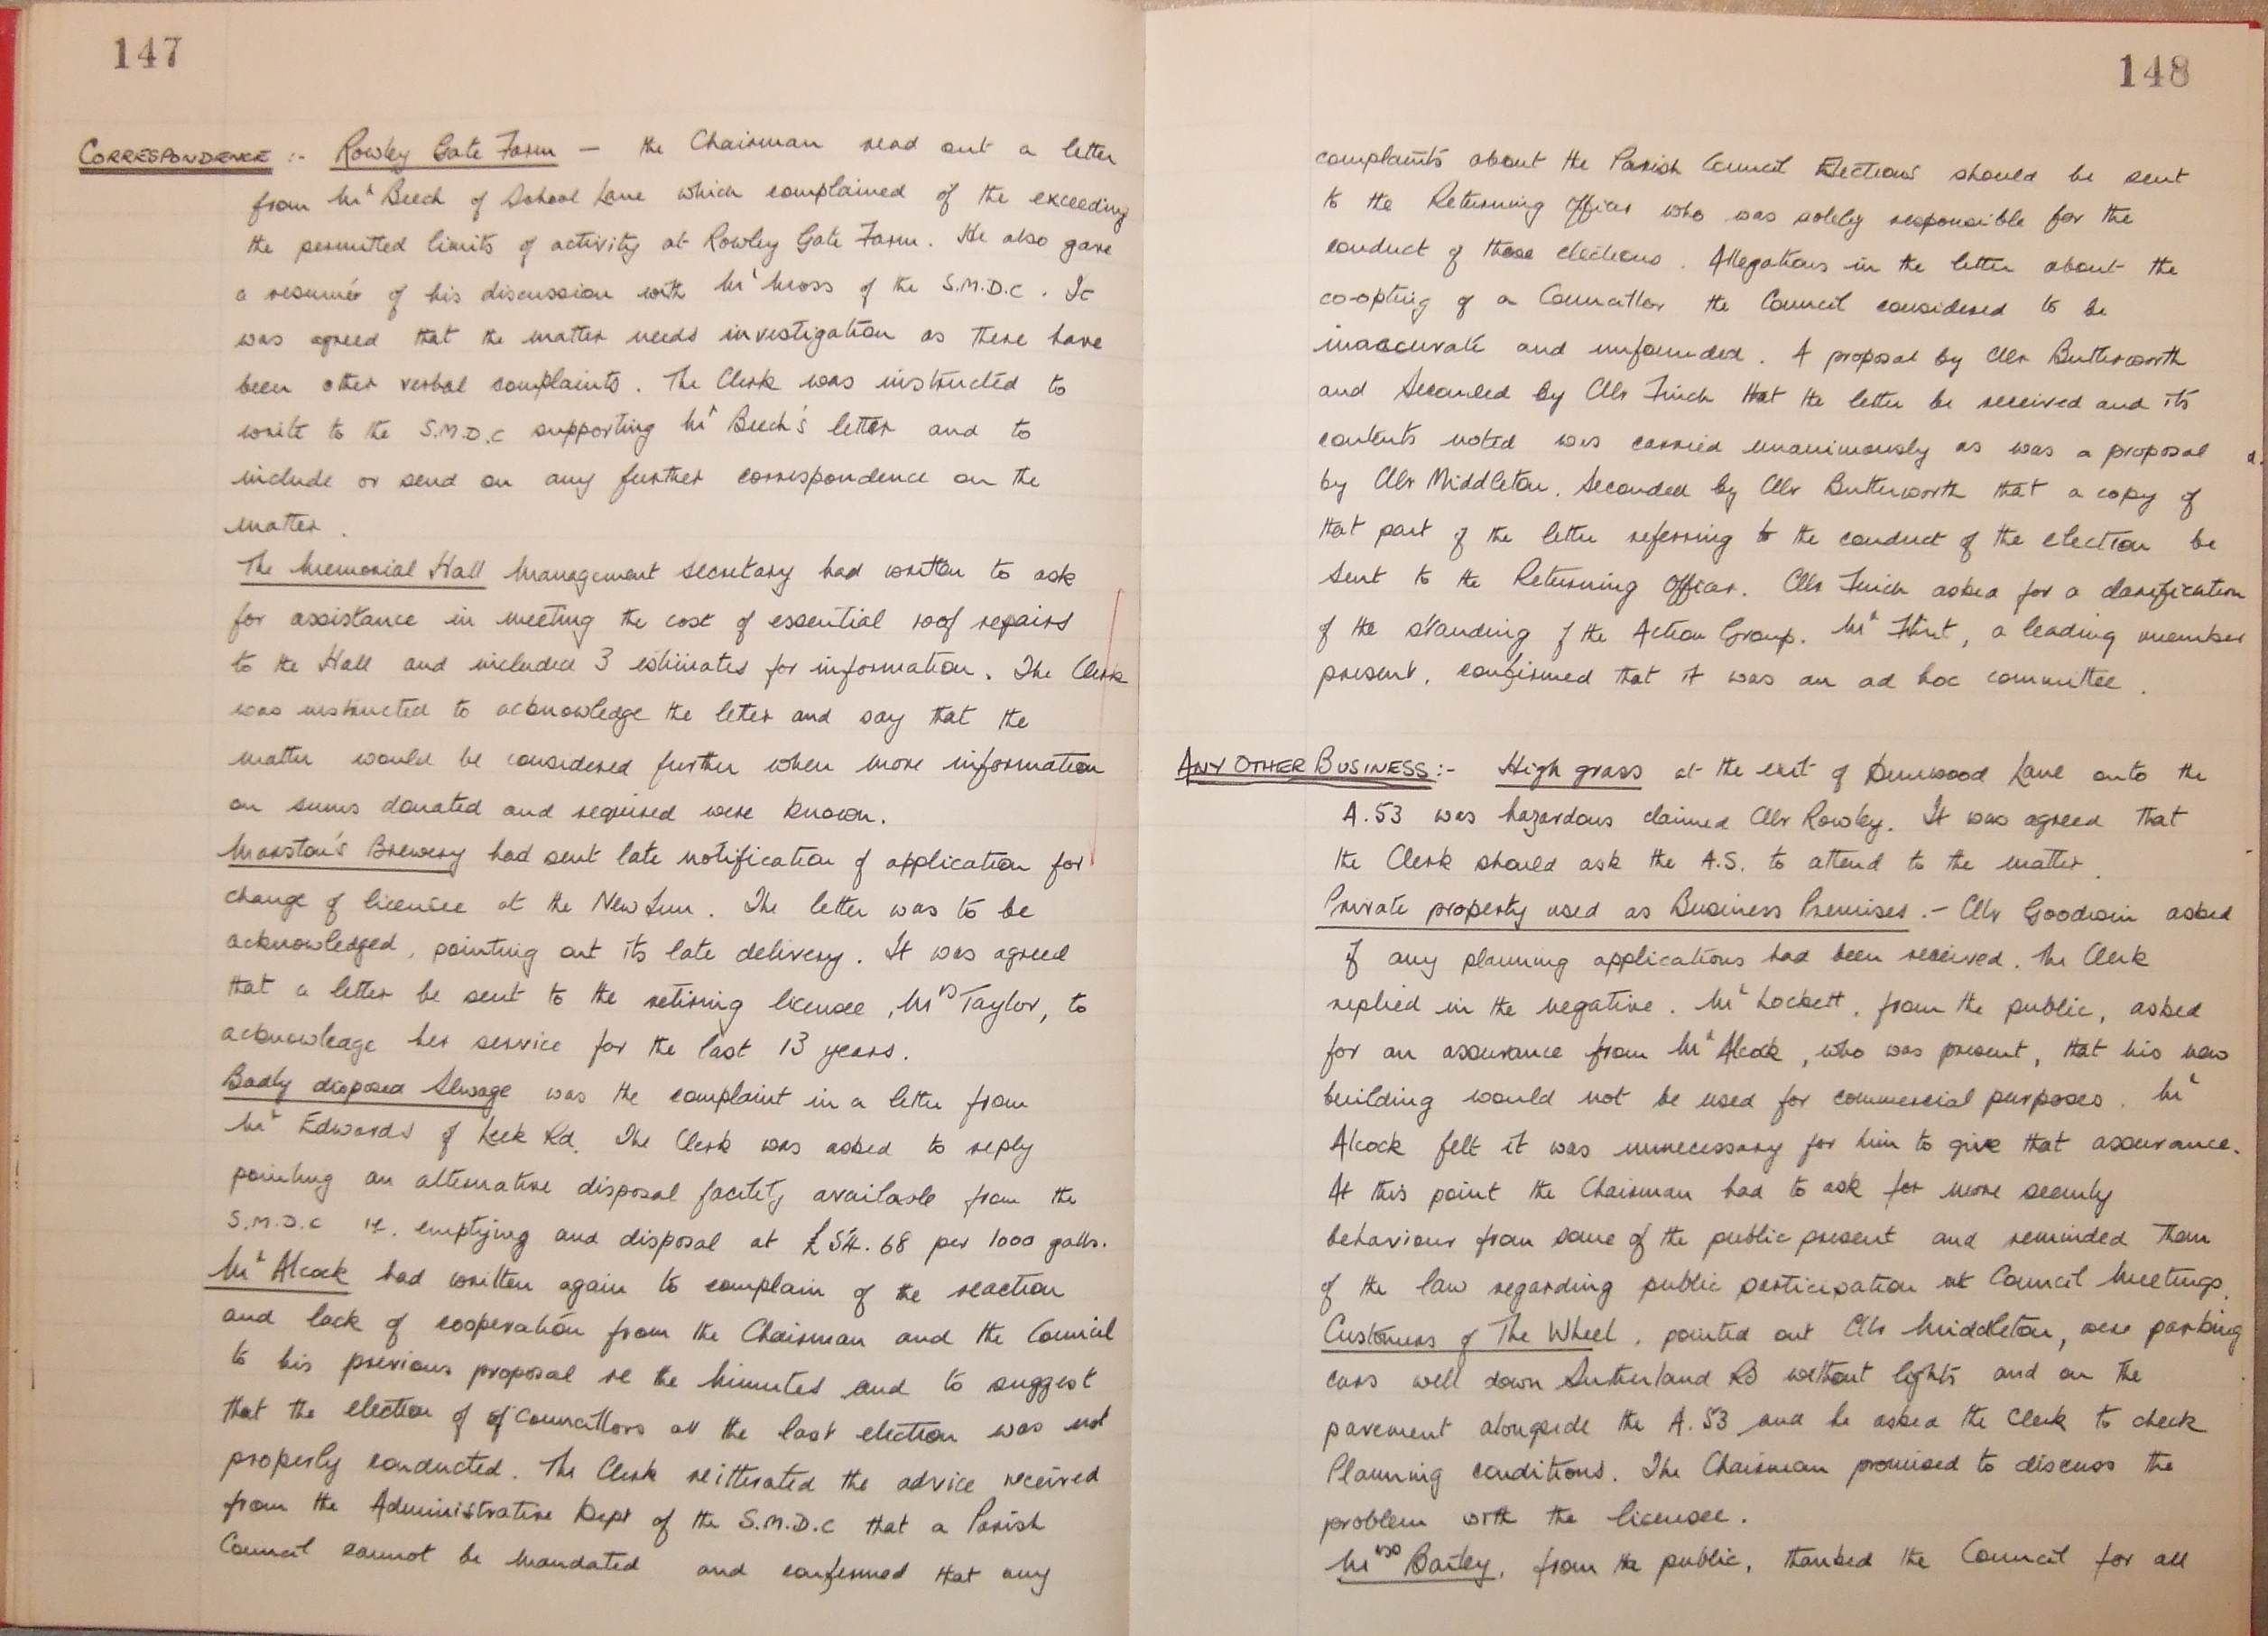 147
CORRESPONDENCE :- Rowley Gate Farm — the Chairman read out a letter
from Mr Beech of School Lane which complained of the exceeding
the permitted limits of activity at Rowley Gate Farm. He also gave
a resumé of his discussion with Mr Moss of the S.M.D.C. It
was agreed that the matter needs investigation as there have
been other verbal complaints. The Clerk was instructed to
write to the S.M.D.C supporting Mr Beech's letter and to
include or send on any further correspondence on the
matter.
The Memorial Hall Management Secretary had written to ask
for assistance in meeting the cost of essential roof repairs
to the Hall and included 3 estimates for information. The Clerk
was instructed to acknowledge the letter and say that the
matter would be considered further when more information
on sums donated and required were known.
Marston's Brewery had sent late notification of application for
change of licensee at the New Inn. The letter was to be
acknowledged, pointing out its late delivery. It was agreed
that a letter be sent to the retiring licensee, Mrs Taylor, to
acknowledge her service for the last 13 years.
Badly disposed Sewage was the complaint in a letter from
Mr Edwards of Leek Rd. The Clerk was asked to reply
pointing an alternative disposal facility available from the
S.M.D.C ie. emptying and disposal at £54.68 per 1000 galls.
Mr Alcock had written again to complain of the reaction
and lack of cooperation from the Chairman and the Council
to his previous proposal re the Minutes and to suggest
that the election of of Councillors at the last election was not
properly conducted. The Clerk reitterated the advice received
from the Administrative Dept of the S.M.D.C that a Parish
Council cannot be mandated and confirmed that any
148
complaints about the Parish Council Elections should be sent
to the Returning Officer who was solely responsible for the
conduct of those elections. Allegations in the letter about the
co-opting of a Councillor the Council considered to be
inaccurate and unfounded. A proposal by Cllr Butterworth
and Seconded by Cllr Finch that the letter be received and its
contents noted was carried unanimously as was a proposal
by Cllr Middleton, Seconded by Cllr Butterworth that a copy of
that part of the letter referring to the conduct of the election be
sent to the Returning Officer. Cllr Finch asked for a clarification
of the standing of the Action Group. Mr Flint, a leading member
present, confirmed that it was an ad hoc committee.
ANY OTHER BUSINESS :- High grass at the exit of Dunwood Lane onto the
A.53 was hazardous claimed Cllr Rowley. It was agreed that
the Clerk should ask the A.S. to attend to the matter.
Private property used as Business Premises. - Cllr Goodwin asked
if any planning applications had been received. The Clerk
replied in the negative. Mr Lockett, from the public, asked
for an assurance from Mr Alcock, who was present, that his new
building would not be used for commercial purposes. Mr
Alcock felt it was unnecessary for him to give that assurance.
At this point the Chairman had to ask for more seemly
behaviour from some of the public present and reminded them
of the law regarding public participation at Council Meetings.
Customers of The Wheel, pointed out Cllr Middleton, were parking
cars well down Sutherland Rd without lights and on the
pavement alongside the A.53 and he asked the Clerk to check
Planning conditions. The Chairman promised to discuss the
problem with the licensee.
Mrs Bailey, from the public, thanked the Council for all